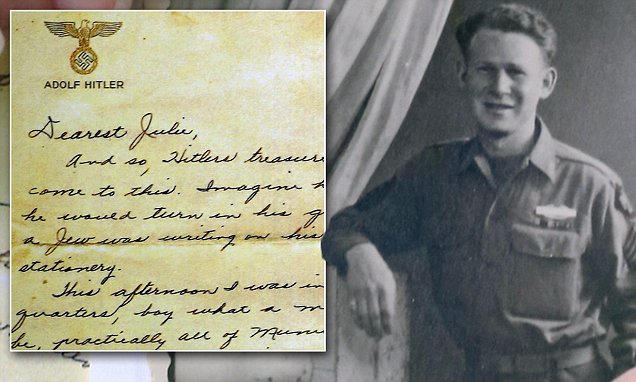 ADOLF HITLER
Dearest Julie,
And so, Hitlers treasure
come to this. Imagine
he would turn in his
a Jew was writing on his
stationery.
This afternoon I was in
quarters, boy what a
be, practically all of